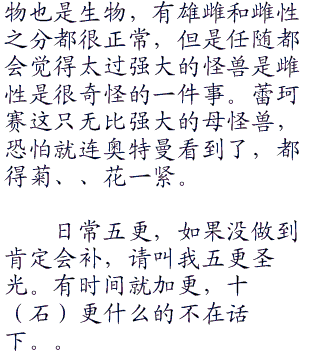 物也是生物，有雄雌和雌性
之分都很正常，但是任随都
会觉得太过强大的怪兽是雌
性是很奇怪的一件事。蕾珂
赛这只无比强大的母怪兽，
恐怕就连奥特曼看到了，都
得菊、、花一紧。
日常五更，如果没做到
肯定会补，请叫我五更圣
光。有时间就加更，十
（石）更什么的不在话
下。。